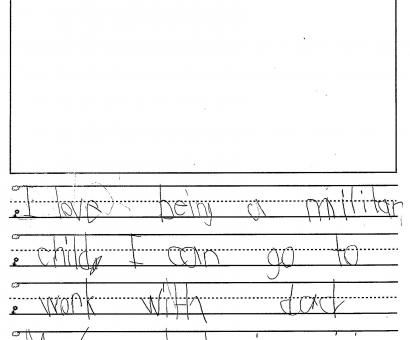 I love being a military
child. I can go to
work with dad